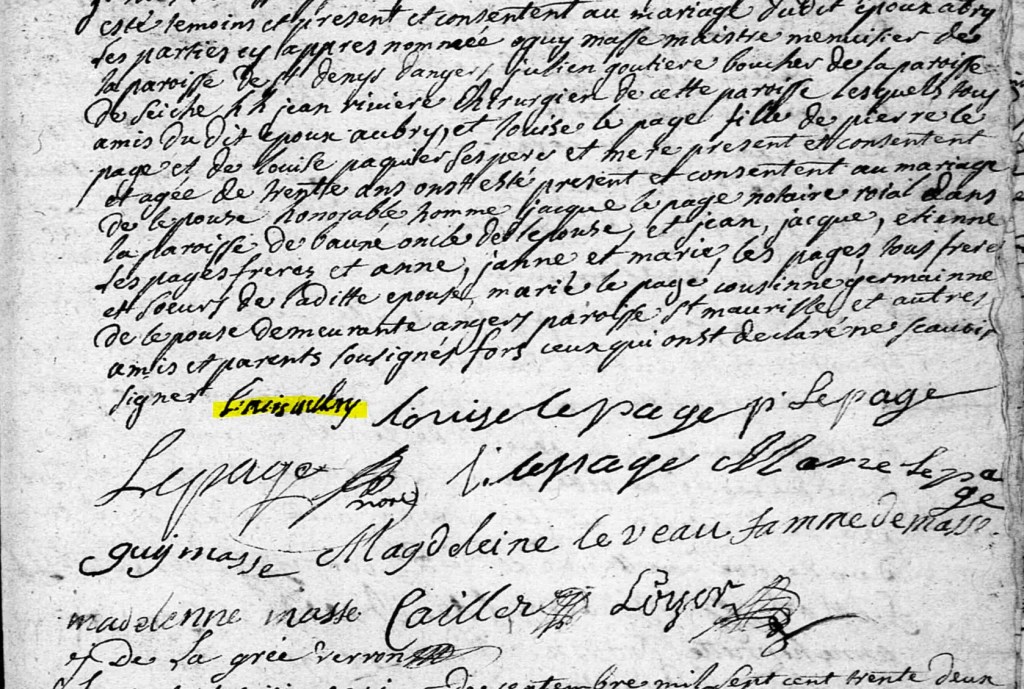 esté temoins et present et consentent au mariage du dit epoux aubry
les parties cy appres nommée guy masse maistre menuisier de
la paroisse de st denys dangers julien goutiere boucher de la paroisse
de seiche jean riviere chirurgien de cette paroisse lesquels tous
amis du dit epoux aubry, et louise le page fille de pierre le
page et de louise paquier ses pere et mere present et consentent
et agée de trentte ans onstt esté present et consentent au mariage
de lepouse honorable homme jacque le page notaire roial dans
la paroisse de bauné oncle de lepouse, et jean, jacque, etienne
les pages freres et anne, janne et marie, les pages, tous frere
et soeurs de laditte epouse, marie le page cousinne germainne
de lepouse demeurante angers paroisse st maurille, et autres
amis et parents sousignés fors ceux qui onst declaré ne scavoir
signer Louis aubry louise lepage p lepage
Lepage nore j. lepage Marie Lepa
ge
guy masse Magdeleine le veau famme de masse
madelenne masse Cailler Loyer
de la grée verron
septembre mil sept cent trente deux